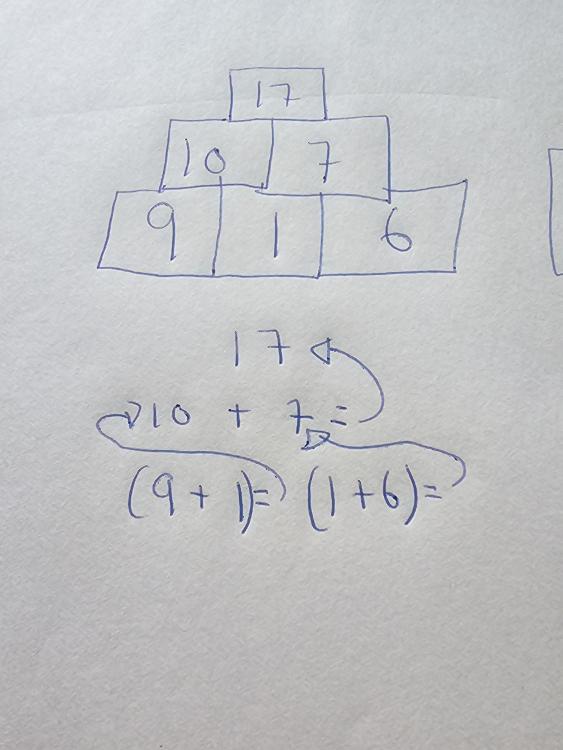 17
10 7
9 1 6
17
10 + 7 =
(9 + 1)= (1+6)=